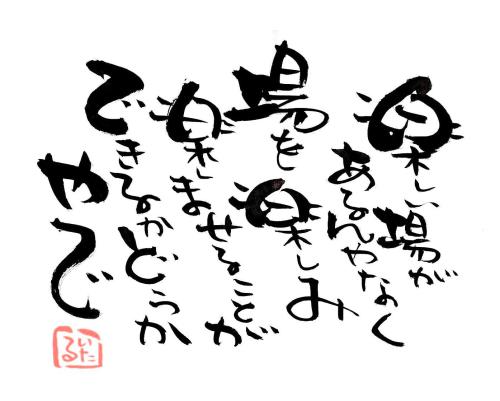 楽しい場が
あるんやなく
場を楽しみ
楽しませることが
できるかどうか
やで
いた
る